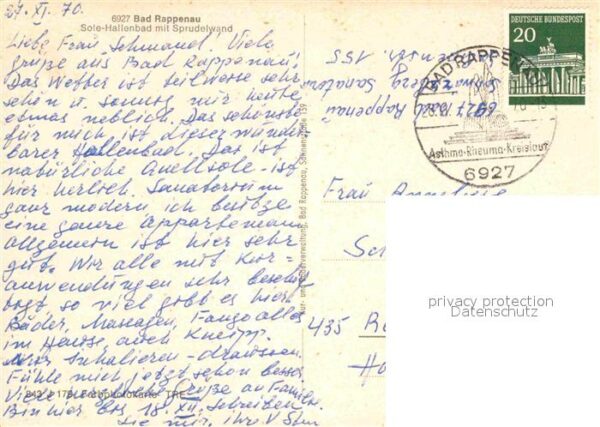 27. XI. 70.
6927 Bad Rappenau
Sole-Hallenbad mit Sprudelwand
Liebe Frau Schmand! Viele
grüße aus Bad Rappenau!
Das Wetter ist teilweise sehr
schön u. sonnig nur heute
etwas neblich. Das schönste
für mich ist dieser wunder
barer Hallenbad. Das ist
natürliche Quellsole - ist
hier herlich. Sanatorium
ganz modern ich besitze
eine ganze Appartemant
allgemein ist hier sehr
gut. Wir alle mit Kur=
anwendungen sehr beschäf
tigt so viel gibt es hier
Bäder, Massagen, Fango alles
im Hause, auch Kneipp.
Nur Inhalieren - draussen.
Fühle mich jetzt schon besser
Viele Grüße an Familie
Bin hier bis 18. XII. Schreiben
Sie mir, ihre V
Farbphotokarte TRE
Kur- und Bäderverwaltung, Bad Rappenau, Salinenstraße
6927 Bad Rappenau
DEUTSCHE BUNDESPOST
20
BAD RAPPENAU
Asthma-Rheuma-Kreislauf
6927
Frau
435
privacy protection
Datenschutz